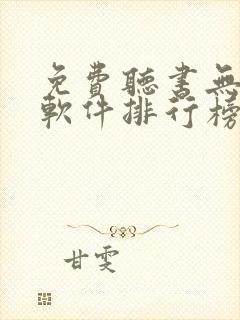 免費聽書無
軟件排行榜
甘雯